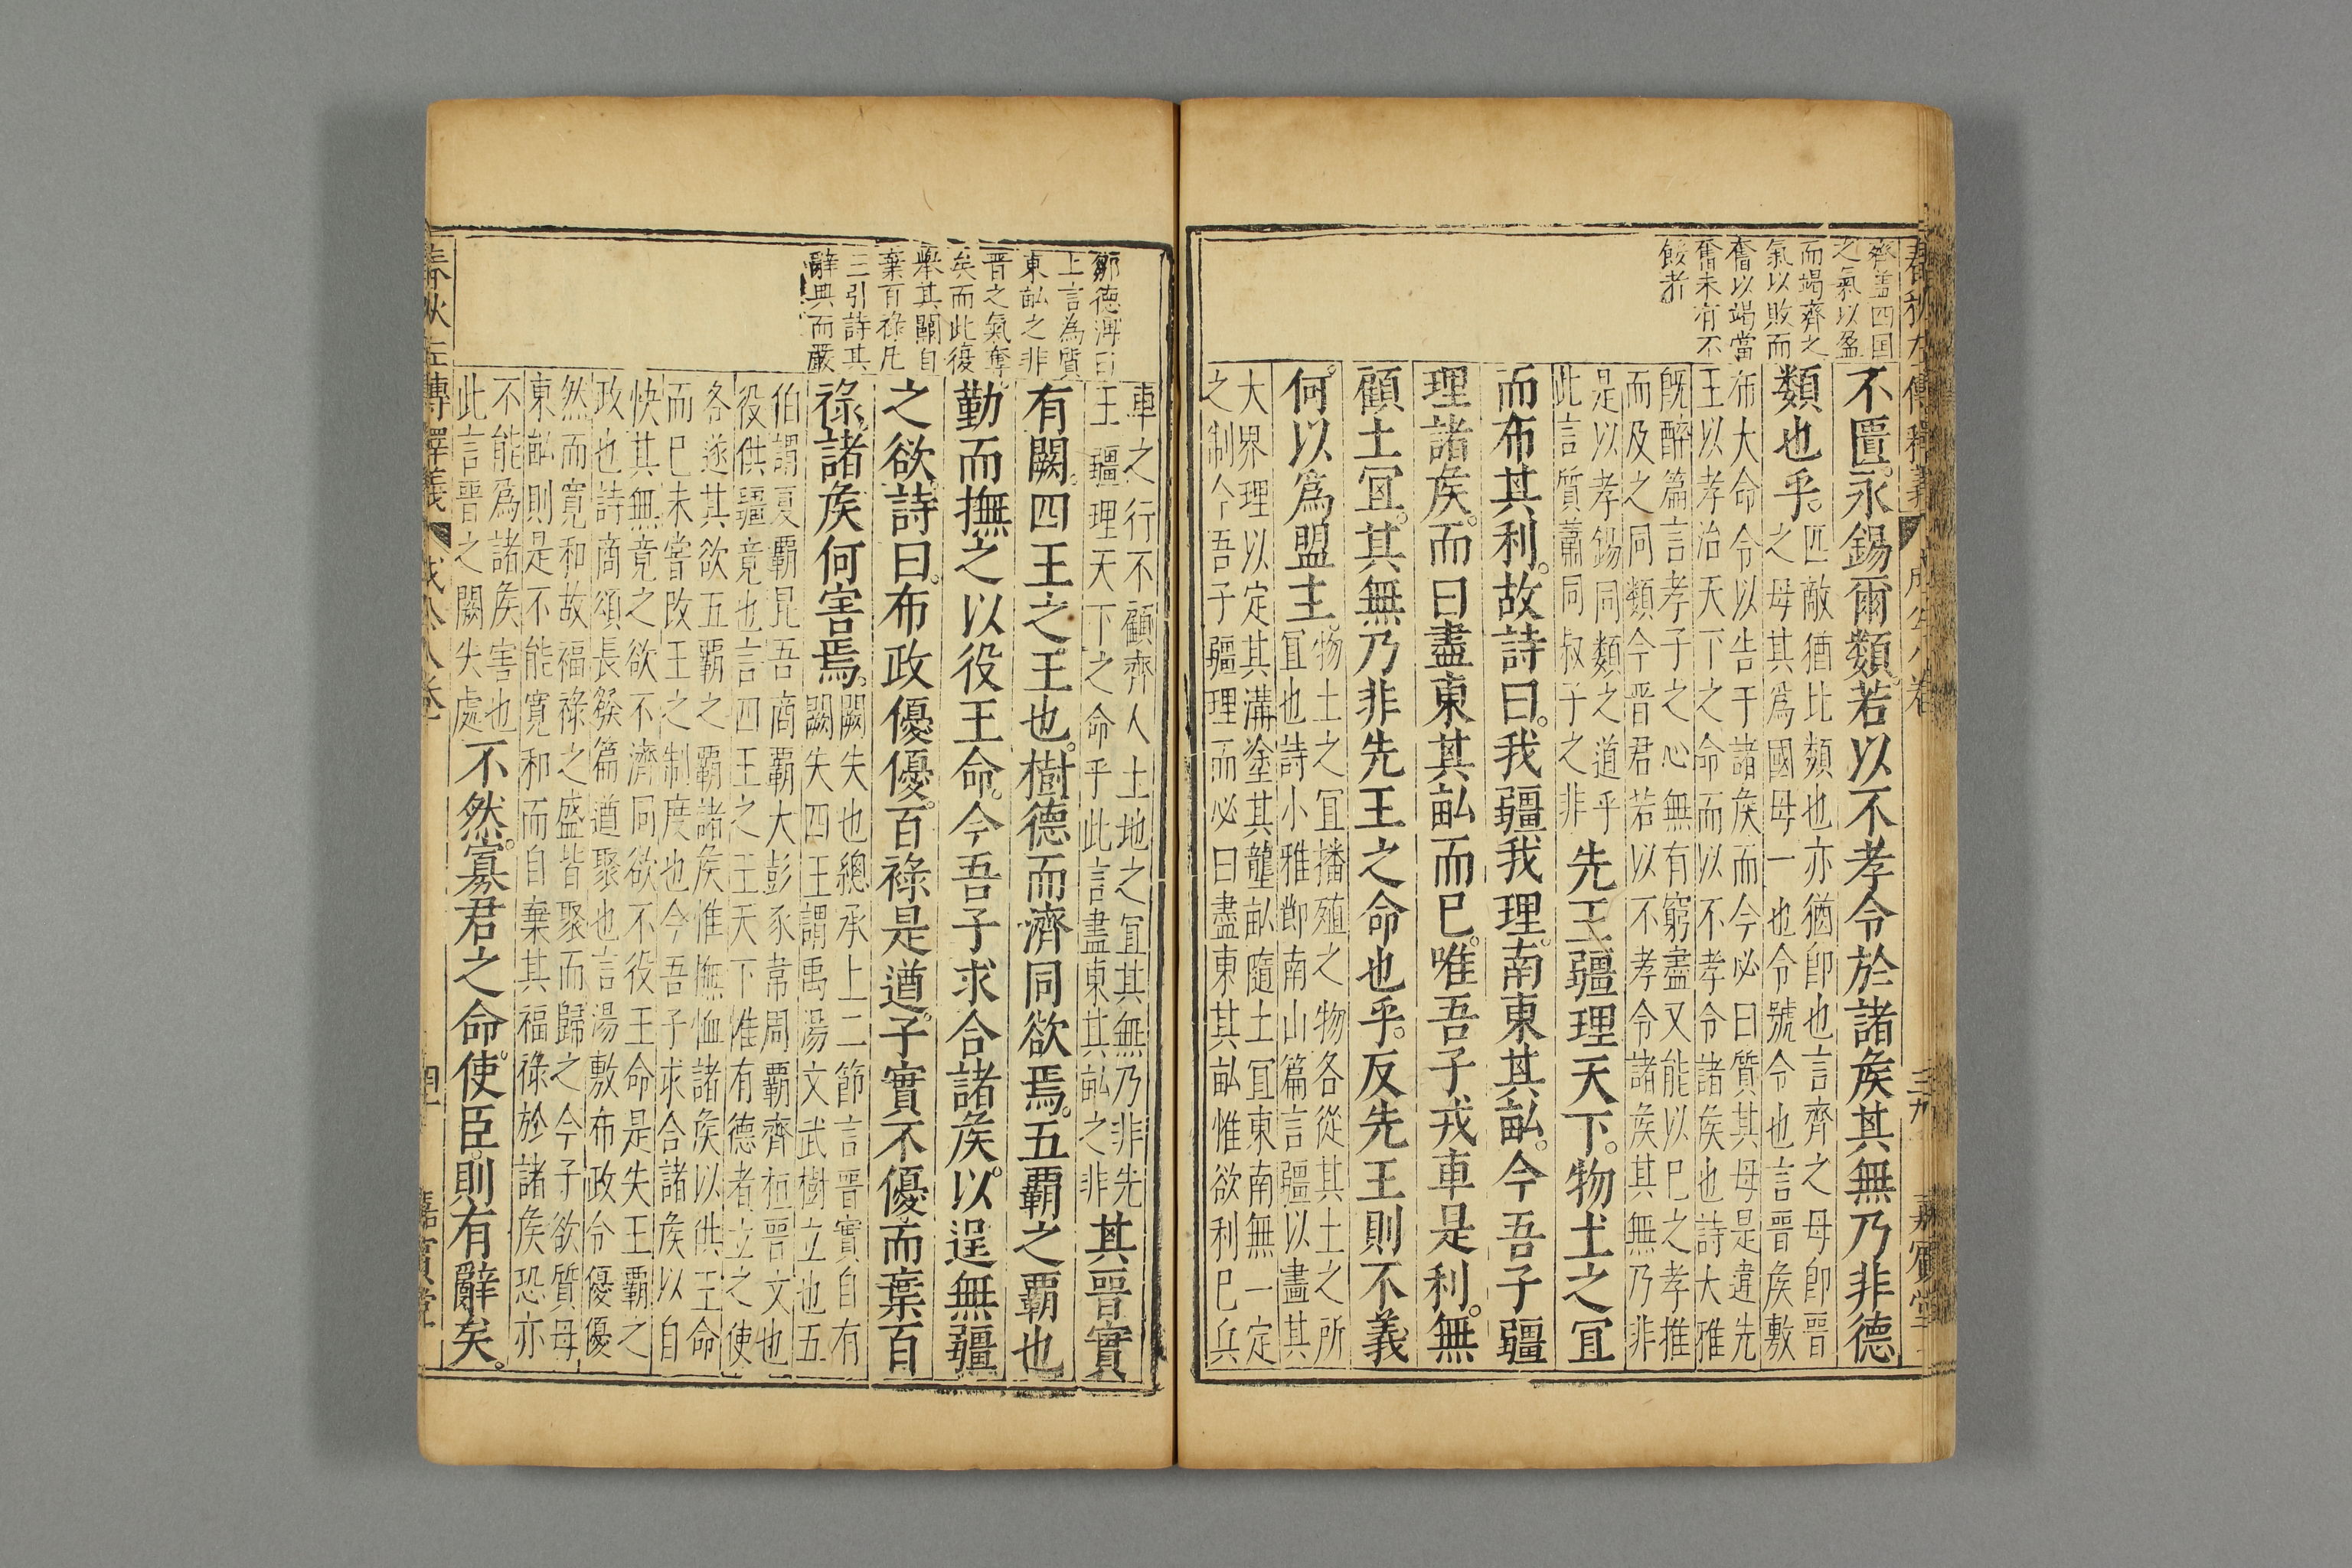 春秋左傳釋義 成公八卷 三九 嘉賓堂
齊盖四国
之氣以盈
而竭齊之
氣以敗而
奮以竭當
奮未有不
餒者
不匱。永錫爾類。若以不孝令於諸矦其無乃非德
類也乎。
匹敵猶比類也亦猶卽也言齊之母卽晉
之母其爲國母一也令號令也言晉矦敷
布大命令以告于諸矦而今必曰質其母是違先
王以孝治天下之命而以不孝令諸矦也詩大雅
旣醉篇言孝子之心無有窮盡又能以巳之孝推
而及之同類今晉君若以不孝令諸矦其無乃非
是以孝錫同類之道乎
此言質蕭同叔子之非
先王疆理天下。物土之冝
而布其利。故詩曰。我疆我理。南東其畝。今吾子疆
理諸矦。而曰盡東其畝而巳。唯吾子戎車是利。無
顧土冝。其無乃非先王之命也乎。反先王則不義
何。以爲盟主。
物土之冝播殖之物各從其土之所
冝也詩小雅卽南山篇言疆以畫其
大界理以定其溝塗其壟畝隨土冝東南無一定
之制今吾子疆理而必曰盡東其畝惟欲利巳兵
鄒德溥曰
上言為質
東畝之非
晋之氣奪
矣而此復
舉其闕自
棄百祿凡
三引詩其
辭典而嚴
車之行不顧齊人土地之冝其無乃非先
王疆理天下之命乎此言盡東其畝之非
其晉實
有闕。四王之王也。樹德而濟同欲焉。五覇之覇也
勤而撫之以役王命。今吾子求合諸矦。以逞無疆
之欲。詩曰。布政優優。百祿是遒。子實不優而棄百
祿。諸矦何害焉。
闕失也總承上二節言晉實自有
闕失四王謂禹湯文武樹立也五
伯謂夏覇昆吾商覇大彭豕韋周覇齊桓晉文也
役供疆竟也言四王之王天下惟有德者立之使
各遂其欲五覇之覇諸矦惟撫恤諸矦以供王命
而巳未嘗改王之制度也今吾子求合諸矦以自
快其無竟之欲不濟同欲不役王命是失王覇之
政也詩商頌長發篇遒聚也言湯敷布政令優優
然而寛和故福祿之盛皆聚而歸之今子欲質母
東畝則是不能寛和而自棄其福祿於諸矦恐亦
不能爲諸矦害也
此言晉之闕失處
不然。寡君之命使。臣則有辭矣。
春秋左傳釋義 成公八卷 四十 嘉賓堂